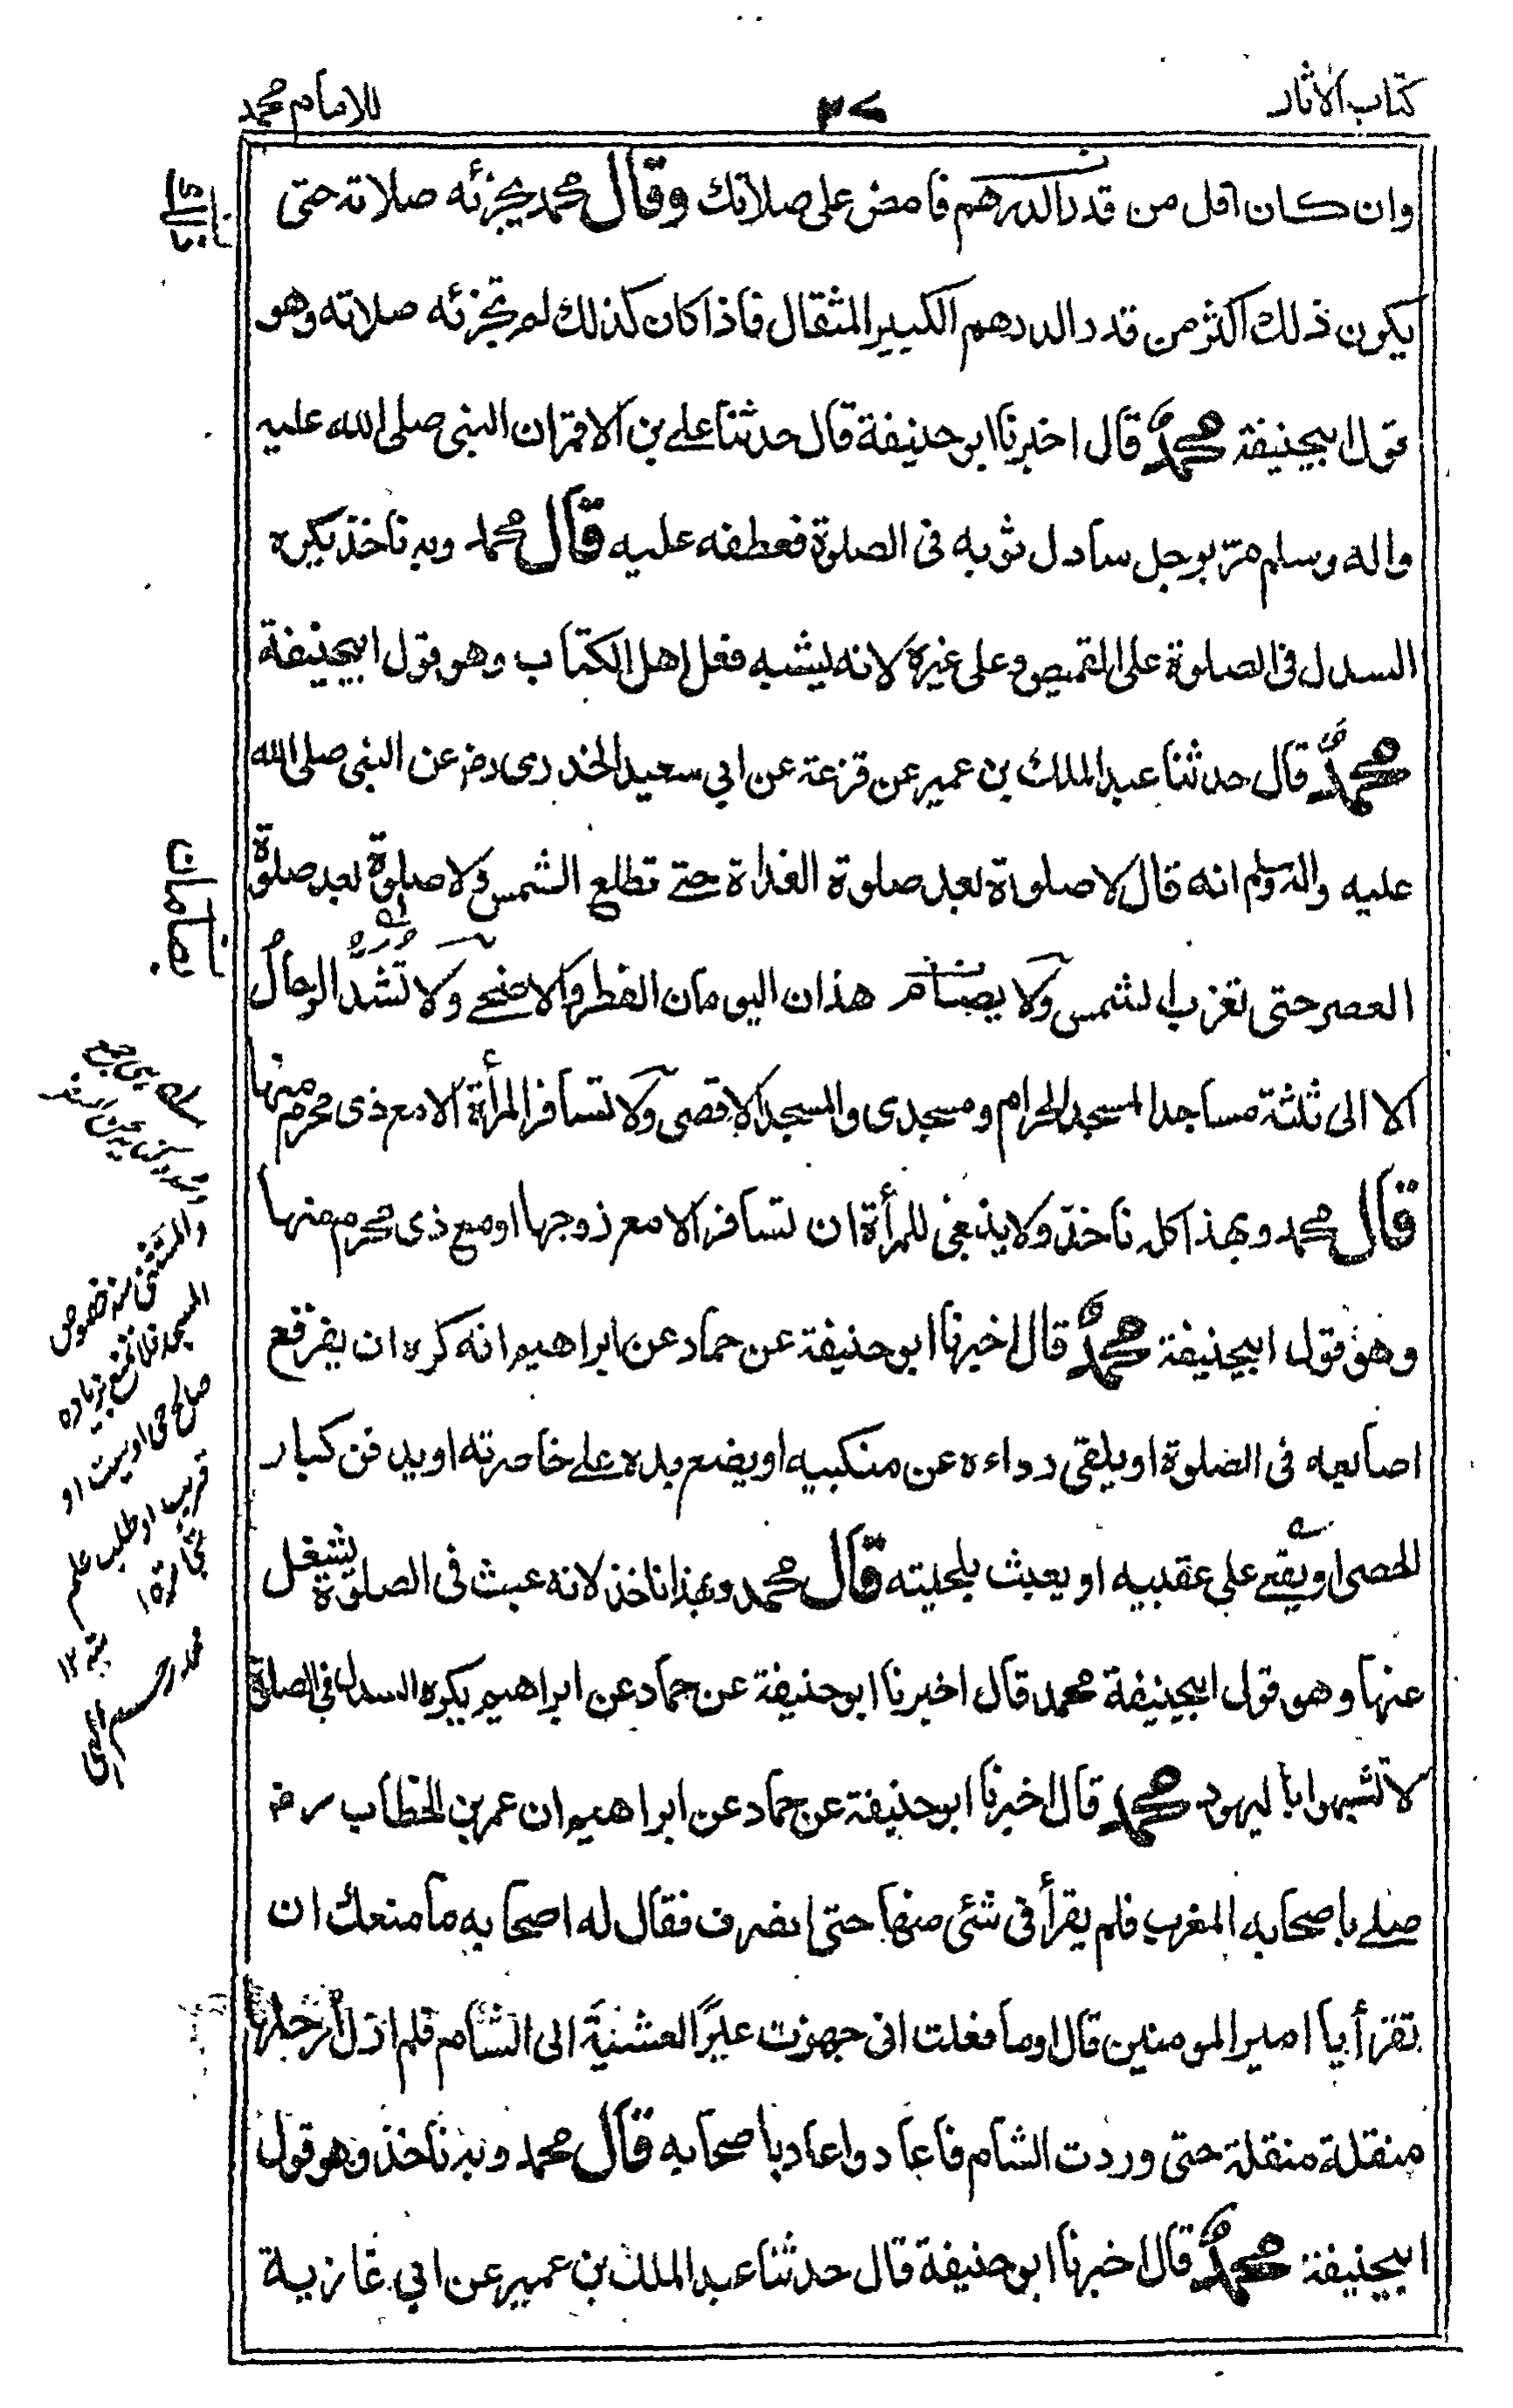 كتاب الاثار
٢٧
للامام محمد
وان كان اقل من قدر الدرهم فامض على صلاتك وقال محمد يجزئه صلاته حتى
يكون ذلك اكثر من قدر الدرهم الكبير المثقال فاذا كان كذلك لم تجزئه صلاته وهو
قول ابيحنيفة محمد قال اخبرنا ابو حنيفة قال حدثنا علے بن الاقمر ان النبى صلى الله عليه
واله وسلم مر برجل سادل ثوبه فى الصلوة فعطفه عليه قال محمد وبه ناخذ يكره
السدل فى الصلوة على القميص وعلى غيره لانه يشبه فعل اهل الكتاب وهو قول ابيحنيفة
محمد قال حدثنا عبد الملك بن عمير عن قزعة عن ابي سعيد الخدرى رض عن النبى صلى الله
عليه واله وسلم انه قال لا صلوة بعد صلوة الغداة حتے تطلع الشمس ولا صلوة بعد صلوة
العصر حتى تغرب الشمس ولا يصام هذان اليومان الفطر والاضحے ولا تُشَدُّ الرحالُ
الا الى ثلثة مساجد المسجد الحرام ومسجدى والمسجد الاقصى ولا تسافر المرأة الا مع ذى محرم منها
قال محمد وبهذا كله ناخذ ولا ينبغى للمرأة ان تسافر الا مع زوجها او مع ذى محرم منها
وهو قول ابيحنيفة محمد قال اخبرنا ابو حنيفة عن حماد عن ابراهيم انه كره ان يفرقع
اصابعه فى الصلوة او يلقى رداءه عن منكبيه او يضع يده علے خاصرته او يدفن كبار
الحصى او يقعے على عقبيه او يعبث بلحيته قال محمد وبهذا ناخذ لانه عبث فى الصلوة يشغل
عنها وهو قول ابيحنيفة محمد قال اخبرنا ابو حنيفة عن حماد عن ابراهيم يكره السدل فى الصلاة
لا تشبهوا باليهود محمد قال اخبرنا ابو حنيفة عن حماد عن ابراهيم ان عمر بن الخطاب رض
صلے باصحابه المغرب فلم يقرأ فى شئى منها حتى انصرف فقال له اصحابه ما منعك ان
تقرأ يا امير المومنين قال اوما فعلت انى جهزت عيرًا العشية الى الشام فلم ازل ارحلها
منقلة منقلة حتى وردت الشام فاعاد واعاد باصحابه قال محمد وبه ناخذ وهو قول
ابيحنيفة محمد قال اخبرنا ابو حنيفة قال حدثنا عبد الملك بن عمير عن ابي غازية
والمستثنى منه خصوص
المسجد فلا تمنع زياره
صالح حى او ميت او
قريب او طلب علم